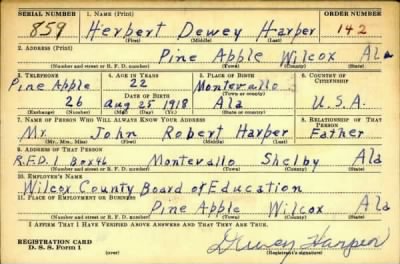 SERIAL NUMBER 1. NAME (Print) ORDER NUMBER
859 Herbert Dewey Harper 142
(First) (Middle) (Last)
2. ADDRESS (Print)
Pine Apple Wilcox Ala
(Number and street or R. F. D. number) (Town) (County) (State)
3. TELEPHONE 4. AGE IN YEARS 5. PLACE OF BIRTH 6. COUNTRY OF CITIZENSHIP
Pine Apple 22 Montevallo
DATE OF BIRTH (Town or county)
26 Aug 25 1918 Ala U.S.A.
(Exchange) (Number) (Mo.) (Day) (Yr.) (State or country)
7. NAME OF PERSON WHO WILL ALWAYS KNOW YOUR ADDRESS 8. RELATIONSHIP OF THAT PERSON
Mr. John Robert Harper Father
(Mr., Mrs., Miss) (First) (Middle) (Last)
9. ADDRESS OF THAT PERSON
R.F.D. 1 Box 46 Montevallo Shelby Ala
(Number and street or R. F. D. number) (Town) (County) (State)
10. EMPLOYER'S NAME
Wilcox County Board of Education
11. PLACE OF EMPLOYMENT OR BUSINESS
Pine Apple Wilcox Ala
(Number and street or R. F. D. number) (Town) (County) (State)
I AFFIRM THAT I HAVE VERIFIED ABOVE ANSWERS AND THAT THEY ARE TRUE.
REGISTRATION CARD
D. S. S. Form 1 Dewey Harper
(over) (Registrant's signature)